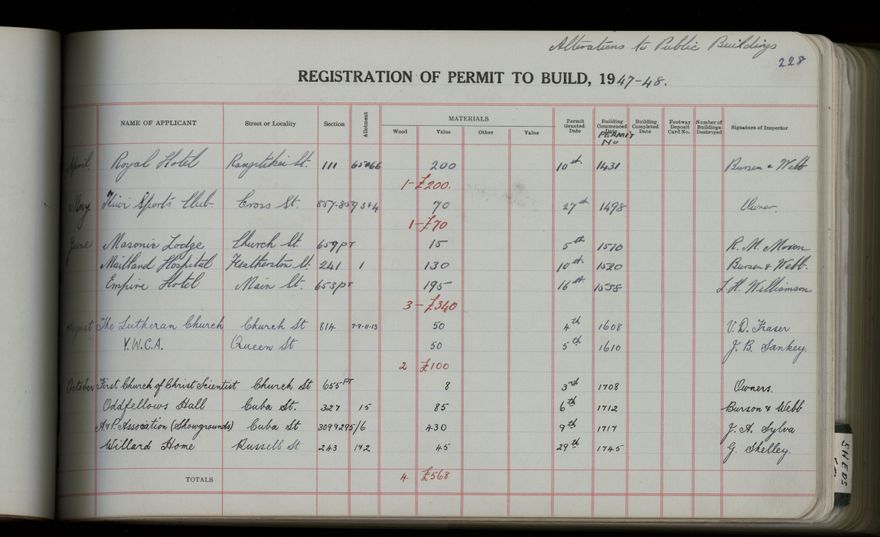 Alterations to Public Buildings
228
REGISTRATION OF PERMIT TO BUILD, 1947-48.
NAME OF APPLICANT Street or Locality Section Allotment MATERIALS Wood Value Other Value Permit Granted Date Building Commenced Date PERMIT No Building Completed Date Footway Deposit Card No. Number of Buildings Destroyed Signature of Inspector
April Royal Hotel Rangitikei St. 111 65 & 66 200 10th 1431 Burson & Webb
1 - £200.
May Sports Club Cross St. 70 27th 1498 Owner.
1 - £70
June Masonic Lodge Church St. 659 pt 15 5th 1510
Maitland Hospital Featherston St. 241 1 130 10th 1520 Burson & Webb.
Empire Hotel Main St. 653 pt 195 16th 1538 L. H. Williamson
3 - £340
August The Lutheran Church Church St 814 7-9-11-13 50 4th 1608 V. D. Fraser
Y.W.C.A. Queen St 50 5th 1610 J. B. Sankey.
2 £100
October First Church of Christ Scientist Church St 655 PT 8 3rd 1708 Owners.
Oddfellows Hall Cuba St. 327 15 85 6th 1712 Burson & Webb
A & P. Assocation (Showgrounds) Cuba St 430 9th 1717 J. A. Sylva
Willard Home Russell St 243 1 & 2 45 29th 1745 G. Shelley.
TOTALS 4 £568
SHEDS